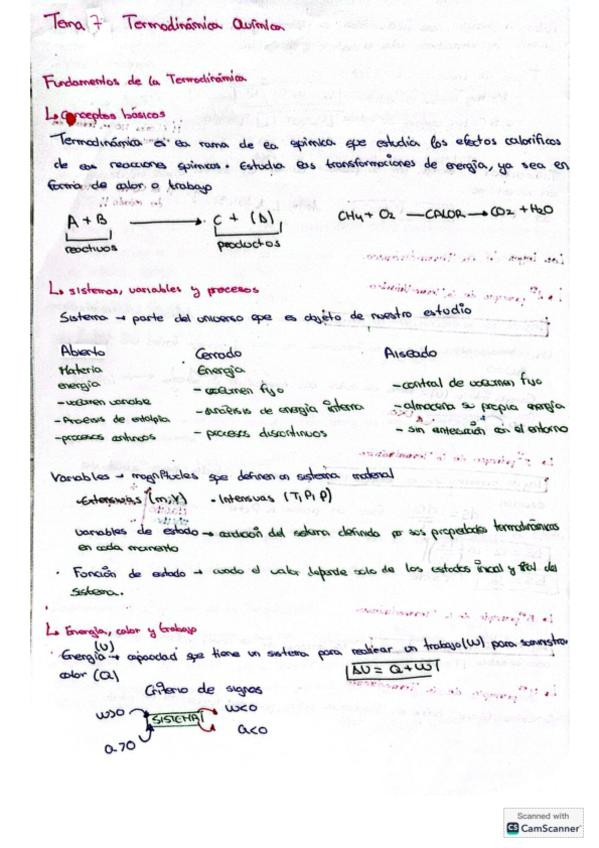 Tema 7 Termodinámica Química
Fundamentos de la Termodinámica
↳ Conceptos básicos
Termodinámica es la rama de la química que estudia los efectos caloríficos
de las reacciones químicas. Estudia las transformaciones de energía, ya sea en
forma de calor o trabajo
A + B → C + (D) CH4 + O2 —CALOR→ CO2 + H2O
reactivos productos
↳ sistemas, variables y procesos
Sistema → parte del universo que es objeto de nuestro estudio
Abierto Cerrado Aislado
Materia Energía
energía - volumen fijo - control de volumen fijo
- volumen variable - análisis de energía interna - almacena su propia energía
- Análisis de entalpía - procesos discontinuos - sin interacción con el entorno
- procesos continuos
Variables → magnitudes que definen un sistema material
• Extensivas (m, V) • Intensivas (T, P, ρ)
variables de estado → condición del sistema definido por sus propiedades termodinámicas
en cada momento
• Función de estado → cuando el valor depende solo de los estados inicial y final del
sistema.
↳ Energía, calor y trabajo
Energía (U) → capacidad que tiene un sistema para realizar un trabajo (W) para suministrar
calor (Q) ΔU = Q + W
Criterio de signos
W>0 SISTEMA W<0
Q>0 Q<0
Scanned with
CS CamScanner